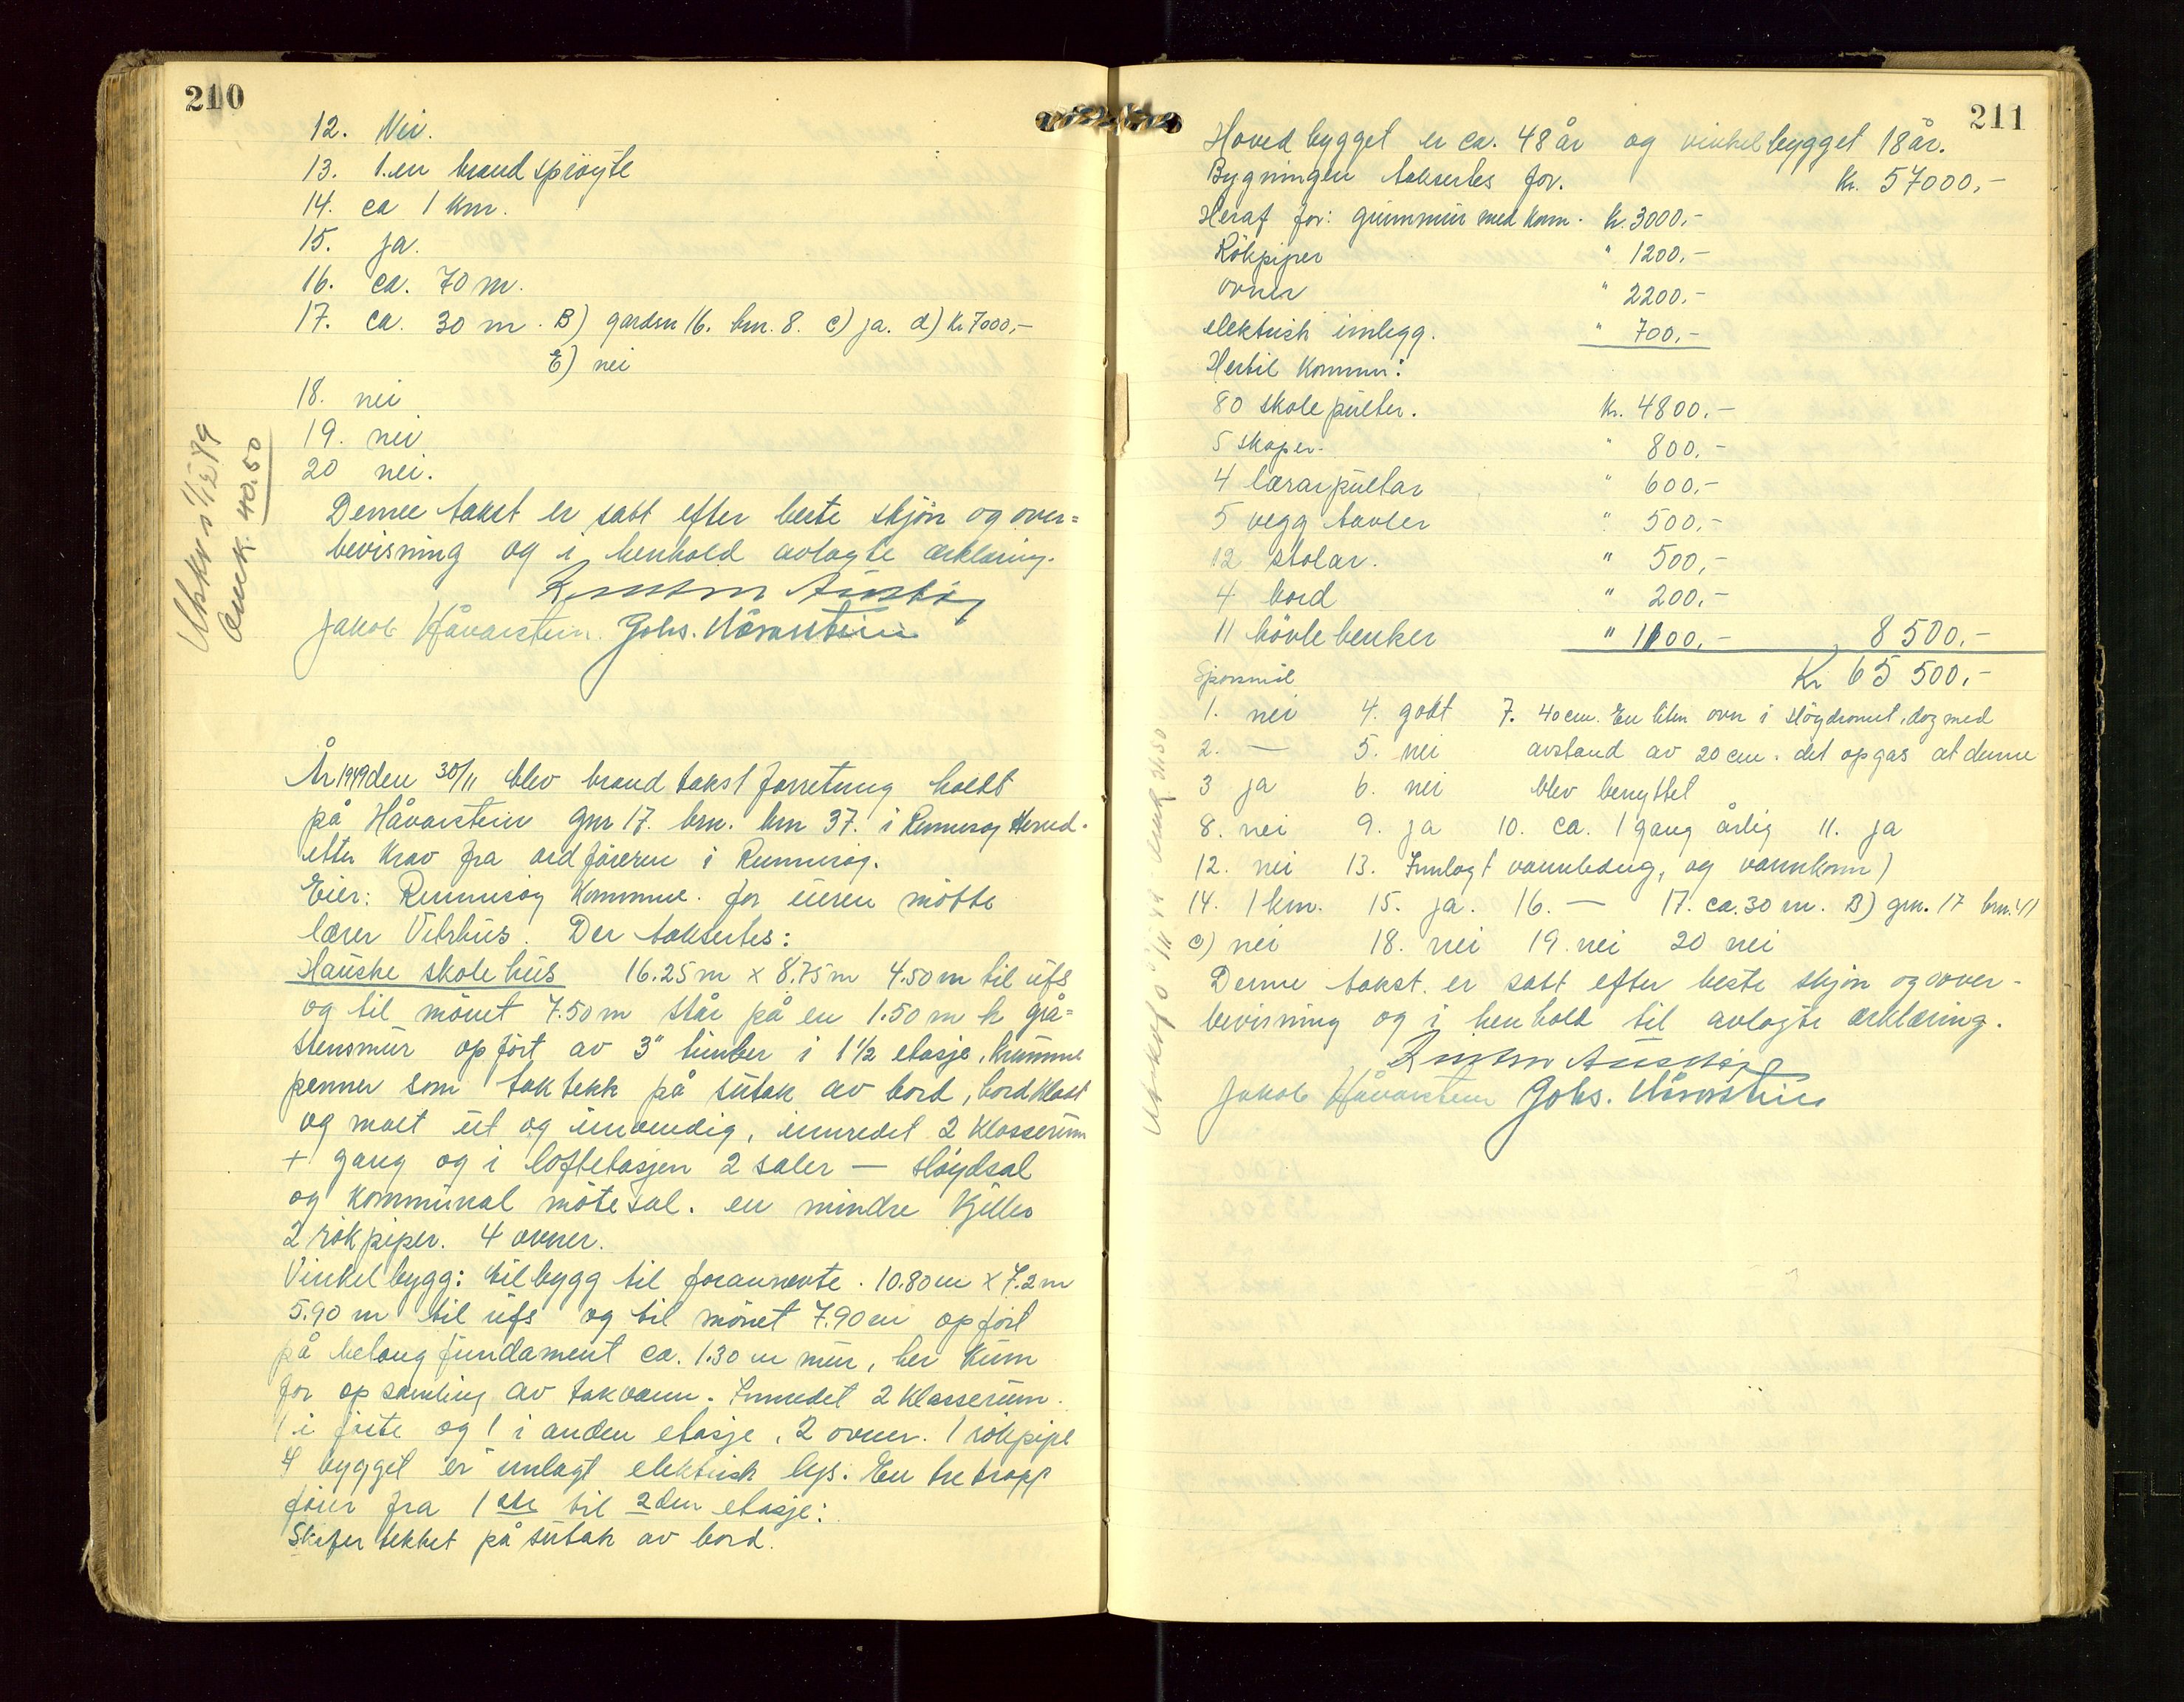 210
12. Nei.
13. 1.en brandsprøyte
14. ca 1 km.
15. ja.
16. ca. 70 m.
17. ca. 30 m. B) gardsn 16. brn. 8. c) ja. d) Kr 7000,-
E) nei
18. nei
19. nei
20 nei.
Utskr. 1/12 49
Denne takst er satt efter beste skjön og over=
bevisning og i henhold avlagte erklæring.
Jakob Håvarstein. Johs. Håvarstein
År 1949 den 30/11 blev brandtakst forretning holdt
på Håvarstein gnr 17. brn. brn 37. i Rennesøy Herred.
etter krav fra ordföreren i Rennesøy.
Eier: Rennesøy Kommune. for eieren mötte
lærer Vitshus. Der taksertes:
Hauske skolehus 16.25 m x 8.75 m 4.50 m til ufs
og til mönet 7.50 m står på en 1.50 m h grå=
stensmur opfört av 3" timber i 1 1/2 etasje, krumme
panner som taktekk på sutak av bord, bordkledt
og malt ut og invendig, innredet 2 klasserum
+ gang og i loftetasjen 2 saler — slöydsal
og kommunal mötesal. en mindre kjeller
2 rökpiper. 4 ovner.
Vinkelbygg: tilbygg til forannevte. 10.80 m x 7.2 m
5.90 m til ufs og til mönet 7.90 m opfört
på betong fundament ca. 1.30 m mur, her kum
for opsamling av takvann. Innredet 2 klasserum.
1 i förte og 1 i anden etasje, 2 ovner. 1 rökpipe
I bygget er innlagt elektrisk lys. En tretrapp
förer fra 1ste til 2den etasje:
Skifertekket på sutak av bord.
211
Hovedbygget er ca. 48 år og vinkelbygget 18 år.
Bygningen taksertes for. Kr. 57000,-
Heraf for: grunnmur med kum. Kr. 3000,-
Rökpiper " 1200,-
ovner " 2200,-
elektrisk innlegg. " 700,-
Hertil kommer:
80 skolepulter. Kr. 4800,-
5 skaper. " 800,-
4 lærarpultar " 600,-
5 veggtavler " 500,-
12 stolar. " 500,-
4 bord " 200,-
11 hövlebenker " 1100,- 8500,-
Spörsmål Kr 65 500,-
1. nei 4. godt 7. 40 cm. En liten ovn i slöydromet, dog med
2. — 5. nei avstand av 20 cm. det opgas at denne
3 ja 6. nei blev benyttet
8. nei 9. ja 10. ca. 1 gang årlig 11. ja
12. nei 13. Innlagt vannledng, og vannkum)
14. 1 km. 15. ja. 16. — 17. ca. 30 m. B) grn. 17 brn. 41
c) nei 18. nei 19. nei 20 nei
Denne takst er satt efter beste skjön og over-
bevisning og i henhold til avlagte erklæring.
Jakob Håvarstein Johs. Håvarstein